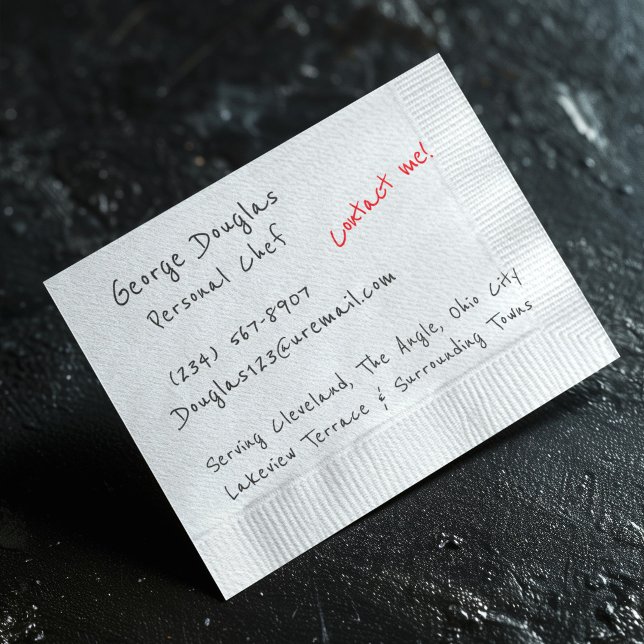 George Douglas
Personal Chef
Contact me!
(234) 567-8907
Douglas123@uremail.com
Serving Cleveland, The Angle, Ohio City
Lakeview Terrace & Surrounding Towns